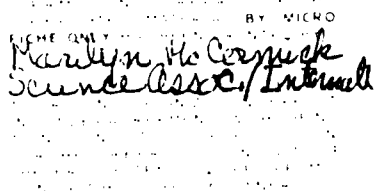 BY MICRO
FICHE ONLY
Marilyn McCormick
Science Assoc./Internatl